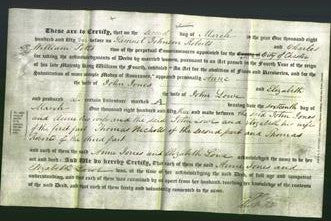 These are to Certify, that on the day of March
hundred and fifty two before us Samuel Johnson Roberts and Charles
William Potts two of the perpetual Commissioners appointed for the County City of Chester
for taking the acknowledgments of Deeds by married women, pursuant to an Act passed in the Fourth Year of the reign
of his late Majesty King William the Fourth, intituled "An Act for the abolition of Fines and Recoveries, and for the
Substitution of more simple Modes of Assurance," appeared personally Anne
the wife of John Jones and Elizabeth
the wife of John Lowe
and produced a certain Indenture marked bearing date the
March One thousand eight hundred and fifty two and made between the said John Jones
and Anne his wife and the said John Lowe and Elizabeth his wife
of the first part Thomas Nicholls of the second part and Thomas
Roberts of the third part
and each of the said Anne Jones and Elizabeth Lowe acknowledged the same to be
act and Deed. And We do hereby Certify, that the said Anne Jones and
Elizabeth Lowe were at the time of their acknowledging the said Deed, of full age and competent
understanding, and that they were examined by us apart from their husbands, touching their knowledge of the contents
of the said Deed, and that they freely and voluntarily consented to the same.